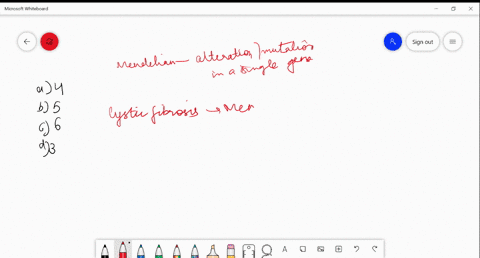 Microsoft Whiteboard
Sign out
Mendelian - alteration/mutation
in a single gene
a) 4
b) 5
c) 6
d) 3
Cystic fibrosis → Men
A